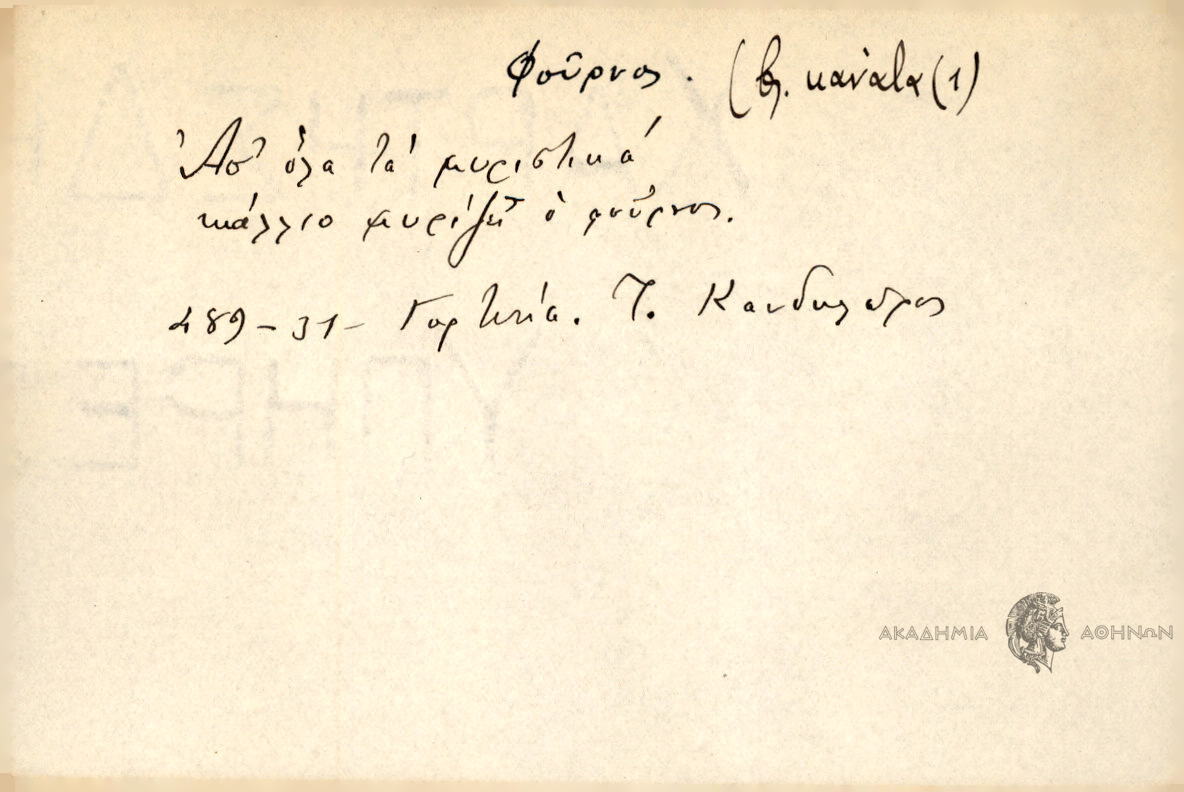 Φοῦρνος. (βλ. κανάτα (1)
Ἀπ' ὅλα τὰ μυριστικά
κάλλιο μυρίζει ὁ φοῦρνος.
489-31- Γορτυνία. Τ. Κανδηλῶρος
ΑΚΑΔΗΜΙΑ ΑΘΗΝΩΝ